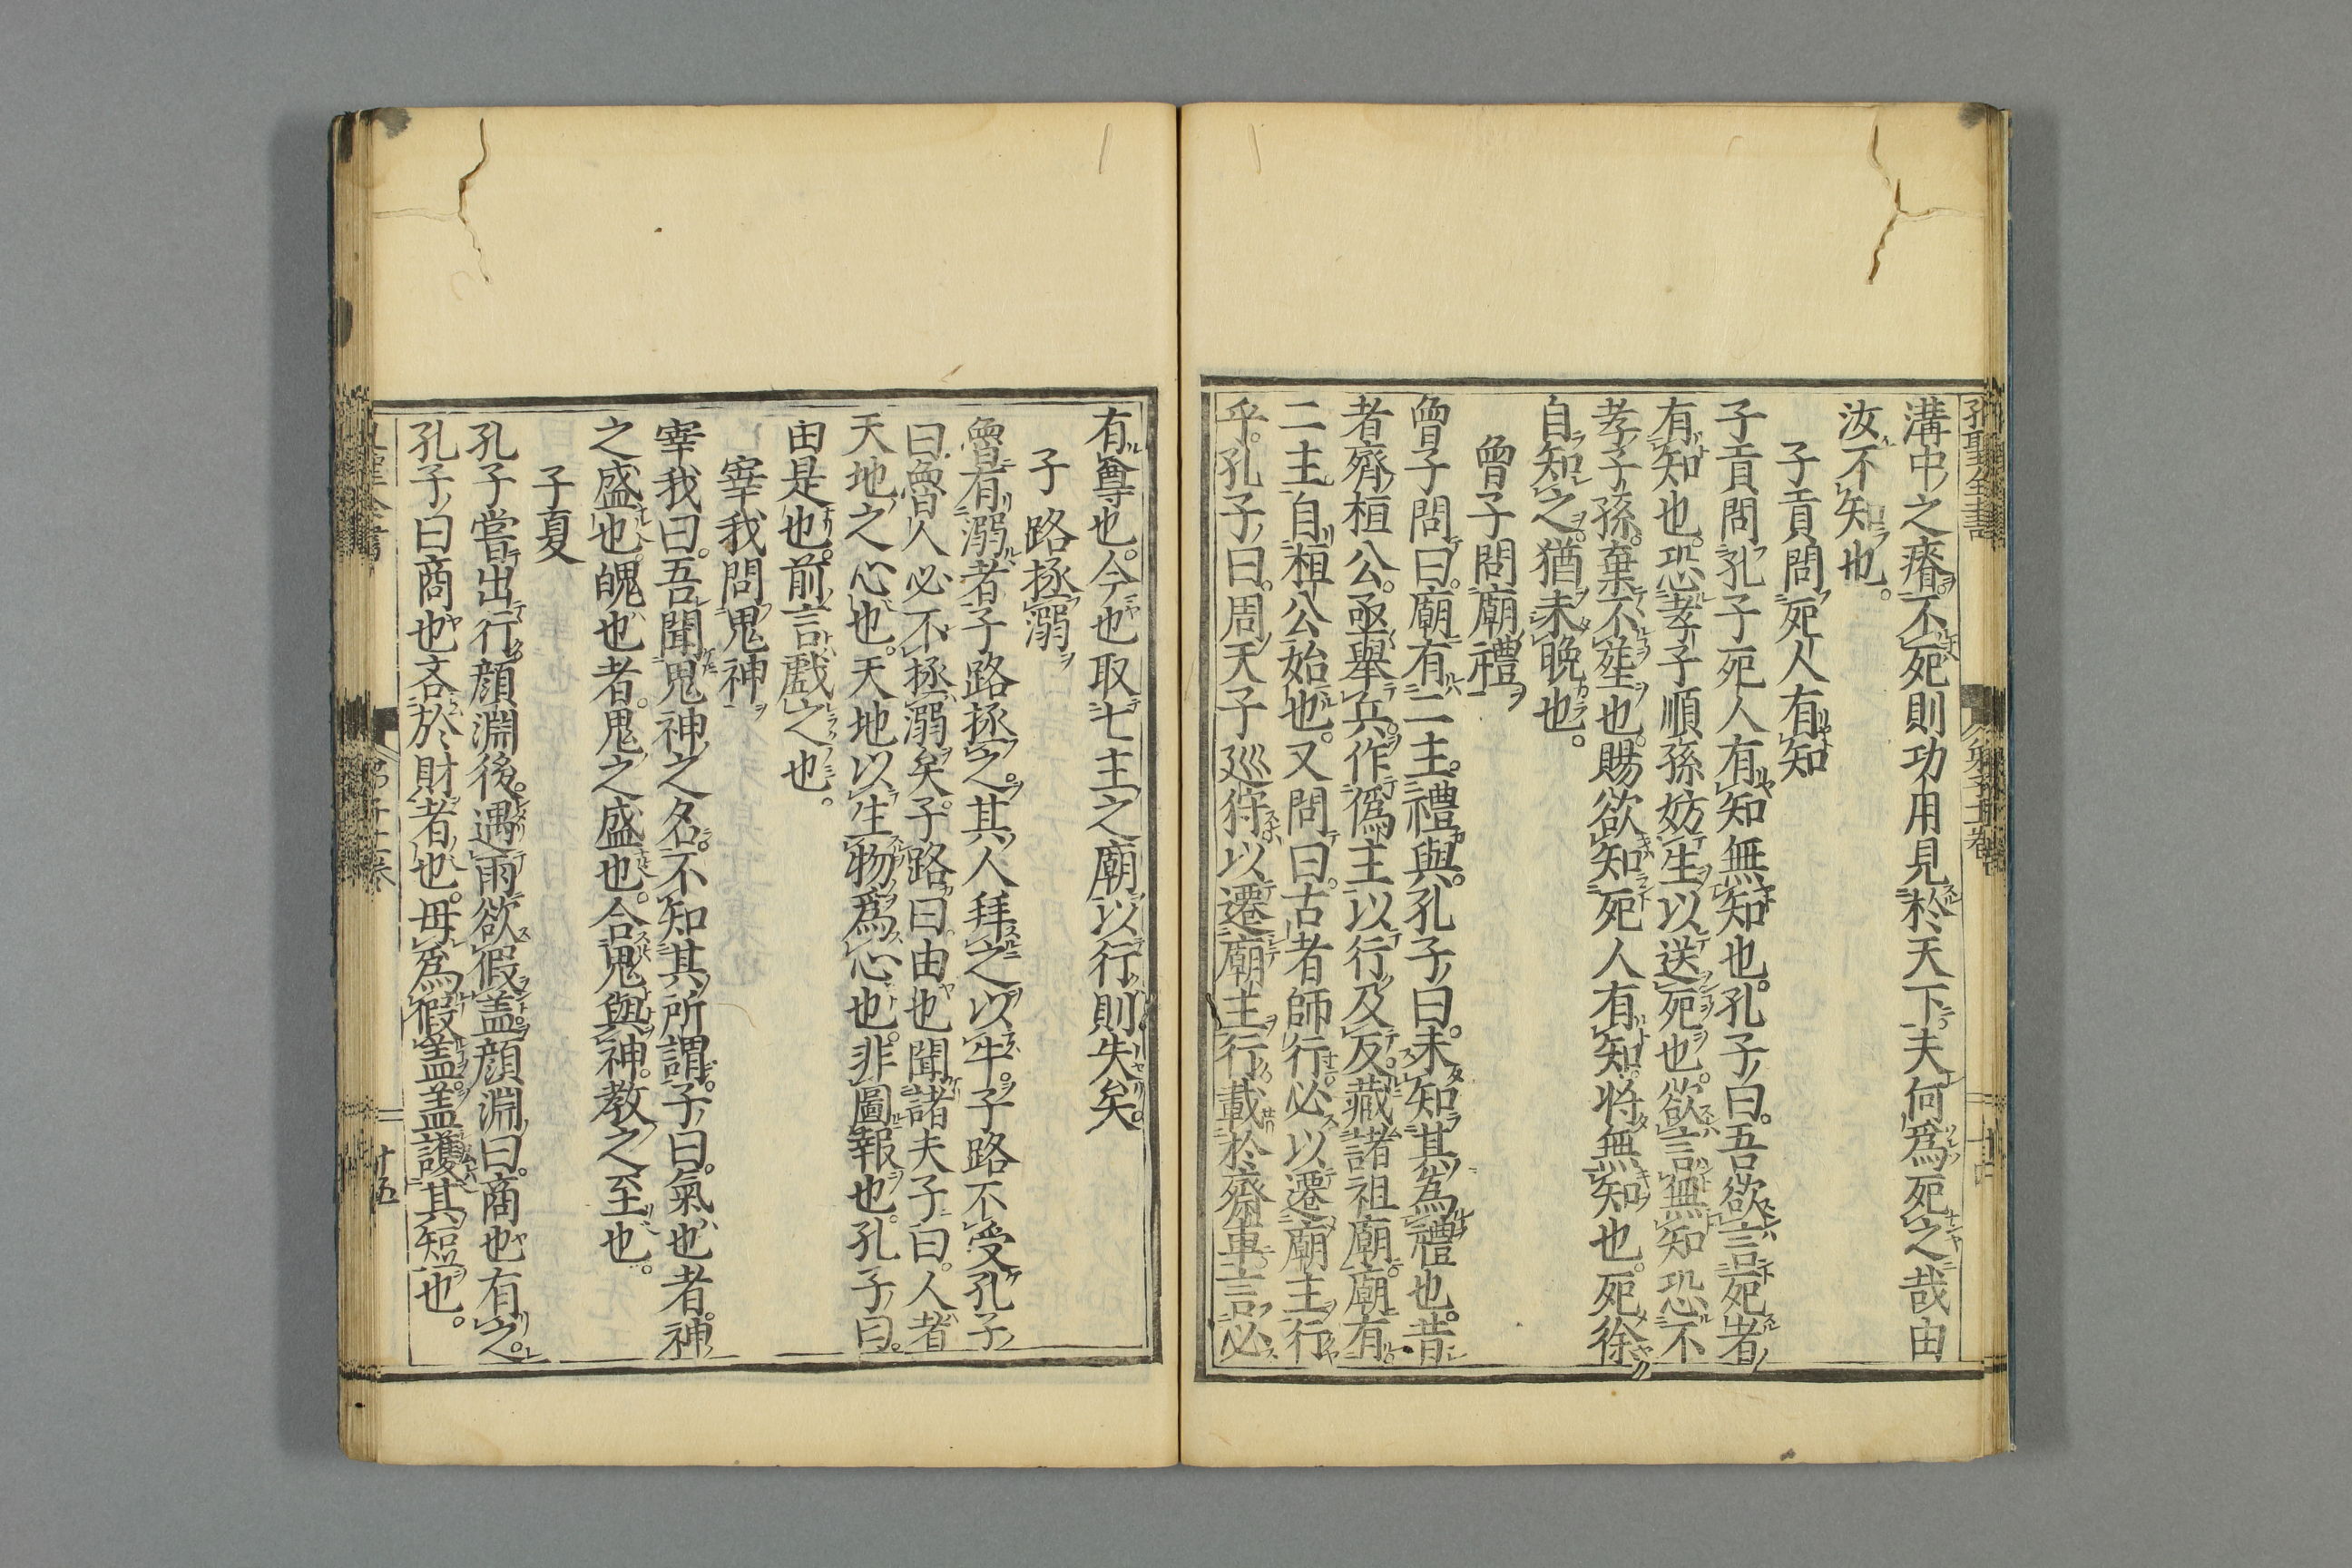 溝中之瘠。不死則功用見於天下。夫何爲死之哉由
汝不知也。
子貢問死人有知
子貢問孔子死人有知無知也。孔子曰。吾欲言死者
有知也。恐孝子順孫妨生以送死也。欲言無知恐不
孝子孫。棄不葬也。賜欲知死人有知。将無知也。死徐
自知之。猶未晩也。
曾子問廟禮
曾子問曰。廟有二主。禮與。孔子曰。未知其爲禮也。昔
者齊桓公。亟舉兵。作僞主以行。及反。藏諸祖廟。廟有
二主。自桓公始也。又問曰。古者師行。必以遷廟主行
乎。孔子曰。周天子巡狩。以遷廟主行。載於齋車。言必
有尊也。今也取七主之廟以行。則失矣。
子路拯溺
魯有溺者。子路拯之。其人拜之以牛。子路不受。孔子
曰。魯人必不拯溺矣。子路曰。由也聞諸夫子曰。人者
天地之心也。天地以生物爲心也。非圖報也。孔子曰。
由是也。前言戲之也。
宰我問鬼神
宰我曰。吾聞鬼神之名。不知其所謂。子曰。氣也者。神
之盛也。魄也者。鬼之盛也。合鬼與神。教之至也。
子夏
孔子嘗出行。顔淵後。遇雨欲假盖。顔淵曰。商也有之。
孔子曰。商也吝於財者也。毋爲假盖。盖護其短也。
十五